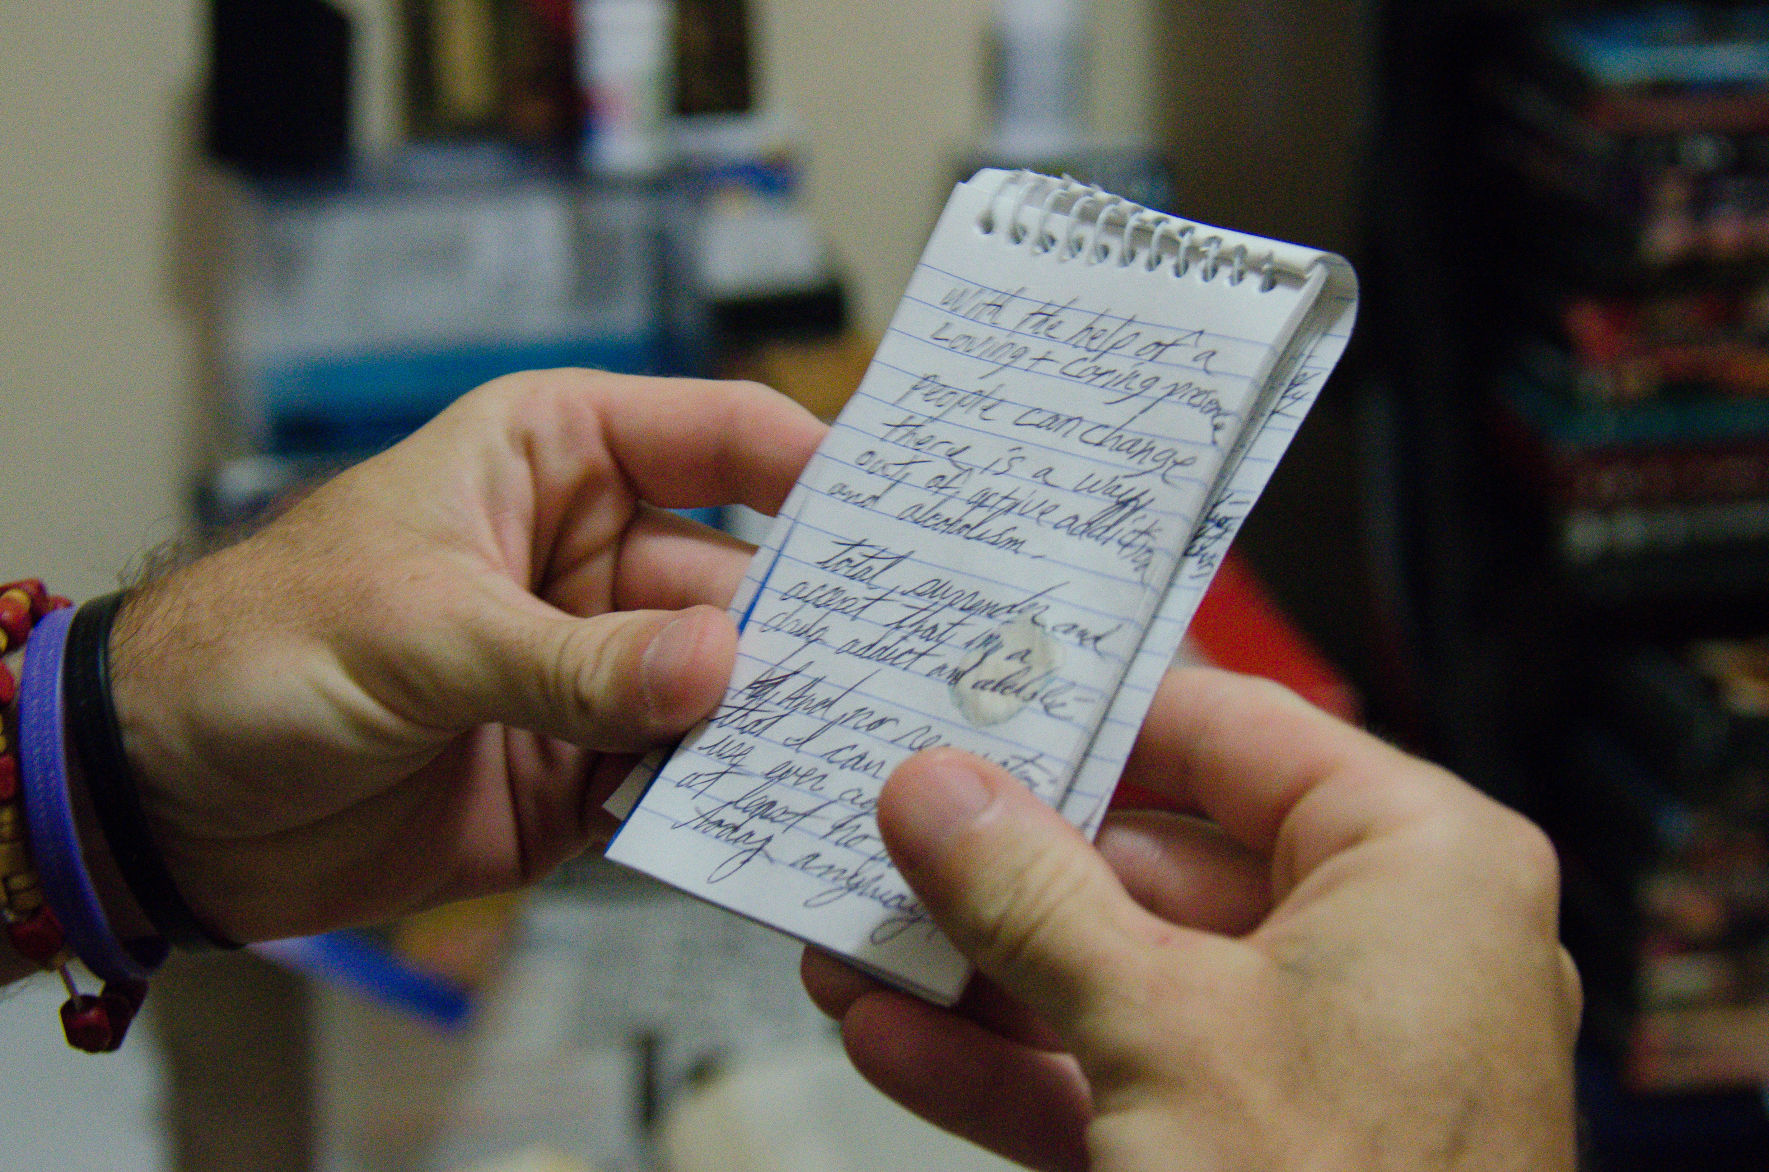 With the help of a
Loving + Caring presence
People can change
there is a way
out of active addiction
and alcoholism.
total surrender and
accept that im a
drug addict and
And
that I can
use ever
at least
today anyway